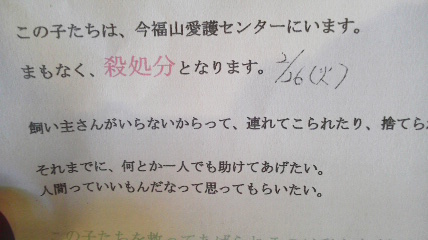 この子たちは、今福山愛護センターにいます。
まもなく、殺処分となります。 2/26(火)
飼い主さんがいらないからって、連れてこられたり、捨てら
それまでに、何とか一人でも助けてあげたい。
人間っていいもんだなって思ってもらいたい。
この子たちを救って